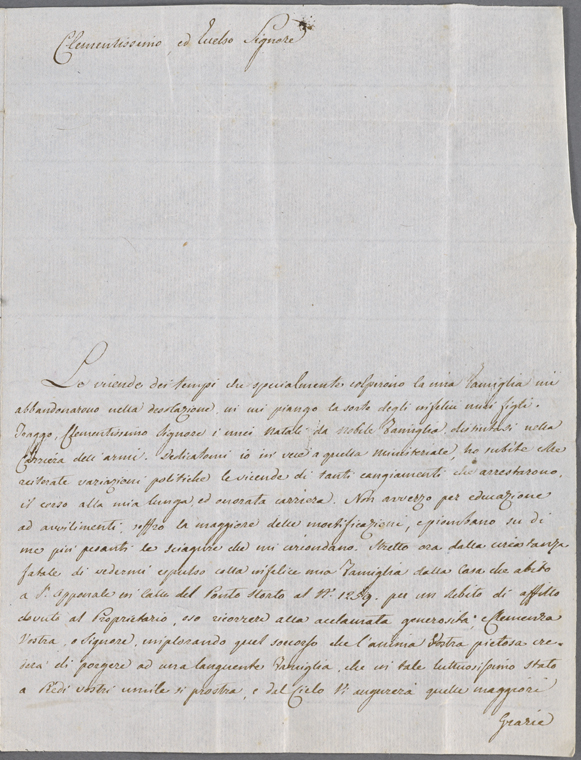 Clementissimo, ed Eccelso Signore
Le vicende dei tempi che specialmente colpirono la mia Famiglia mi
abbandonarono nella desolazione, in cui piango la sorte degli infelici miei figli.
Traggo, Clementissimo Signore i miei Natali da Nobile Famiglia distintasi nella
Carriera dell'armi. Dedicatomi io in vece a quella Ministeriale, ho subite
variazioni politiche le vicende di tanti cangiamenti che arrestarono
il corso alla mia lunga, ed onorata carriera. Non avvezzo per educazione
ad avvilimenti, soffro la maggiore delle mortificazioni, e piombano su di
me più pesanti le sciagure che mi circondano. Stretto ora dalla circostanza
fatale di vedermi espulso colla infelice mia Famiglia dalla Casa che abito
a S. Apponale in Calle del Ponte Storto al N. 1259. per un debito di affitto
dovuto al Proprietario, oso ricorrere alla acclamata generosità e Clemenza
Vostra, o Signore, implorando quel soccorso che l'anima Vostra pietosa cre-
derà di porgere ad una languente Famiglia, che in tale luttuosissimo stato
a Piedi vostri umile si prostra, e dal Cielo V. augurerà quelle maggiori
Grazie